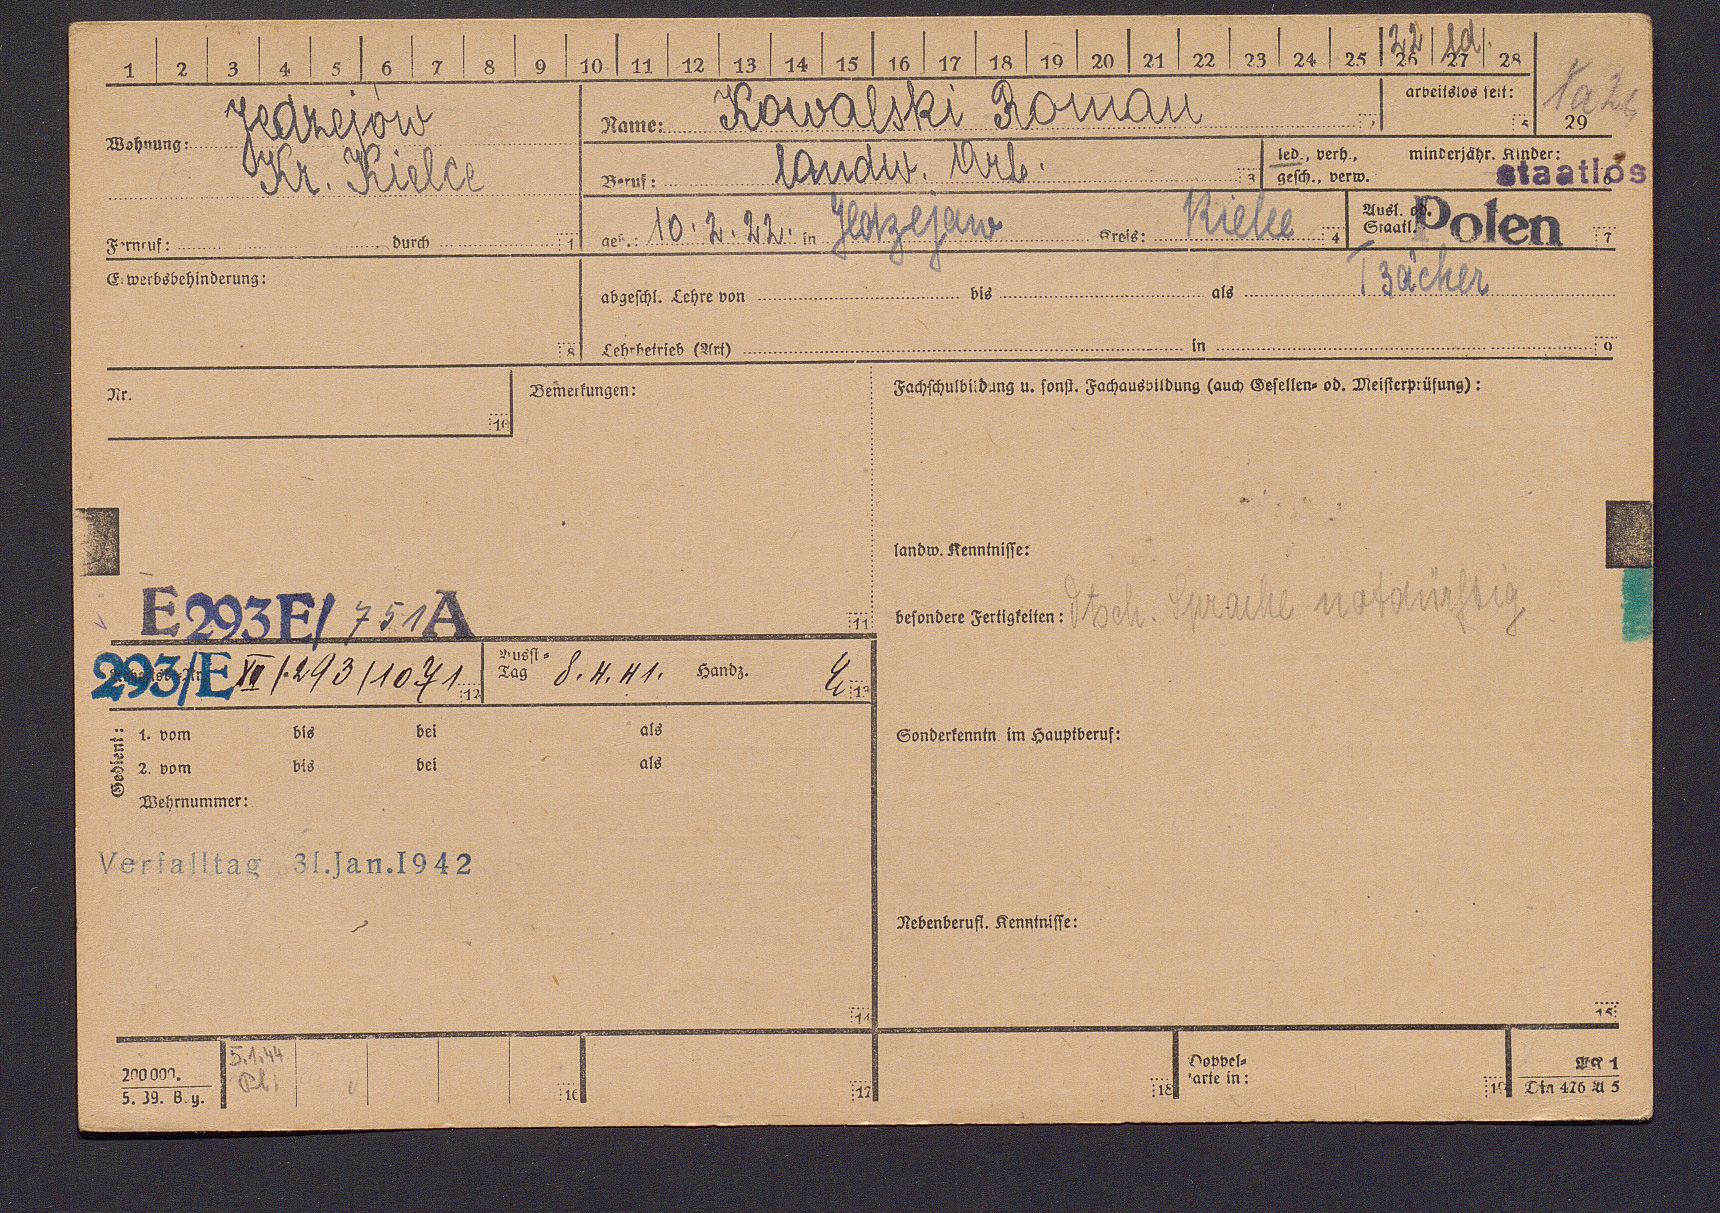 22 ld.
1 2 3 4 5 6 7 8 9 10 11 12 13 14 15 16 17 18 19 20 21 22 23 24 25 26 27 28
29
Wohnung: Jedrzejów
Kr. Kielce
Fernruf: durch 1
Name: Kowalski Roman
arbeitslos seit: 5
Beruf: landw. Arb. 3
led., verh., gesch., verw.
minderjähr. Kinder: 6
staatlos
geb.: 10.2.22. in Jedzejaw Kreis: Kielce 4
Ausl. od. Staatl. Polen 7
Erwerbsbehinderung: 8
abgeschl. Lehre von bis als
Lehrbetrieb (Art) in 9
Nr. 10
Bemerkungen:
Fachschulbildung u. sonst. Fachausbildung (auch Gesellen- od. Meisterprüfung):
landw. Kenntnisse:
besondere Fertigkeiten: Dtsch. Sprache notdürftig
E 293 E/ 751 A 11
293/E XII/293/1071 12
Ausst-Tag 8.4.41. Handz. 13
Gedient:
1. vom bis bei als
2. vom bis bei als
Wehrnummer:
Verfalltag 31.Jan.1942
14
Sonderkenntn. im Hauptberuf:
Nebenberufl. Kenntnisse:
15
200000.
5. 39. B.y.
5.1.44
16 17 18
Doppel-
karte in: 19
AK 1
Din 476 A 5